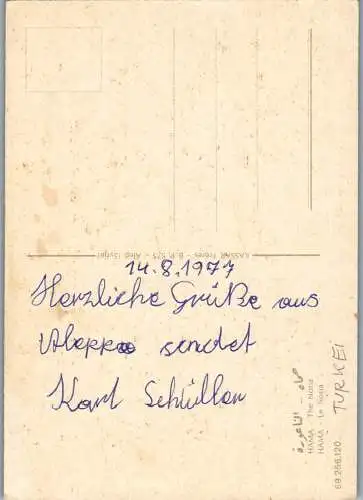 KASSAR Frères - B. P. 575 - Alep (Syrie)
14.8.1977
Herzliche Grüße aus
Aleppo sendet
Karl Schüller
حماه - الناعورة
HAMA - The Noria
HAMA - Le Noria
69.266.120
TURKEI